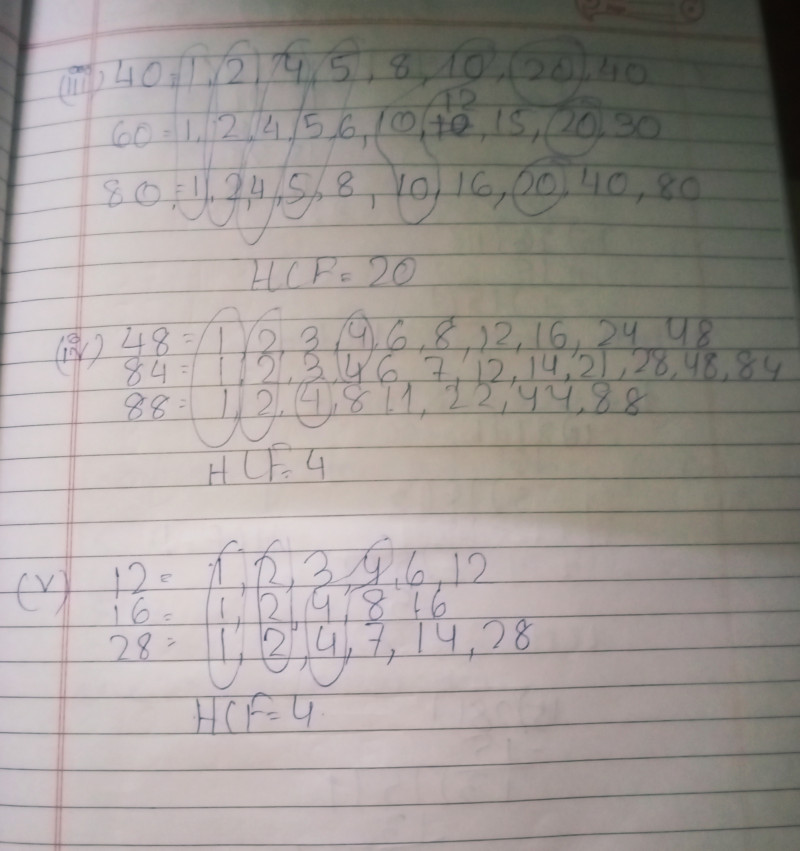 (iii) 40 = 1, 2, 4, 5, 8, 10, 20, 40
60 = 1, 2, 4, 5, 6, 10, 12, 15, 20, 30
80 = 1, 2, 4, 5, 8, 10, 16, 20, 40, 80
HCF = 20
(iv) 48 = 1, 2, 3, 4, 6, 8, 12, 16, 24, 48
84 = 1, 2, 3, 4 6, 7, 12, 14, 21, 28, 48, 84
88 = 1, 2, 4, 8 11, 22, 44, 88
HCF = 4
(v) 12 = 1, 2, 3, 4, 6, 12
16 = 1, 2, 4, 8 16
28 = 1, 2, 4, 7, 14, 28
HCF = 4